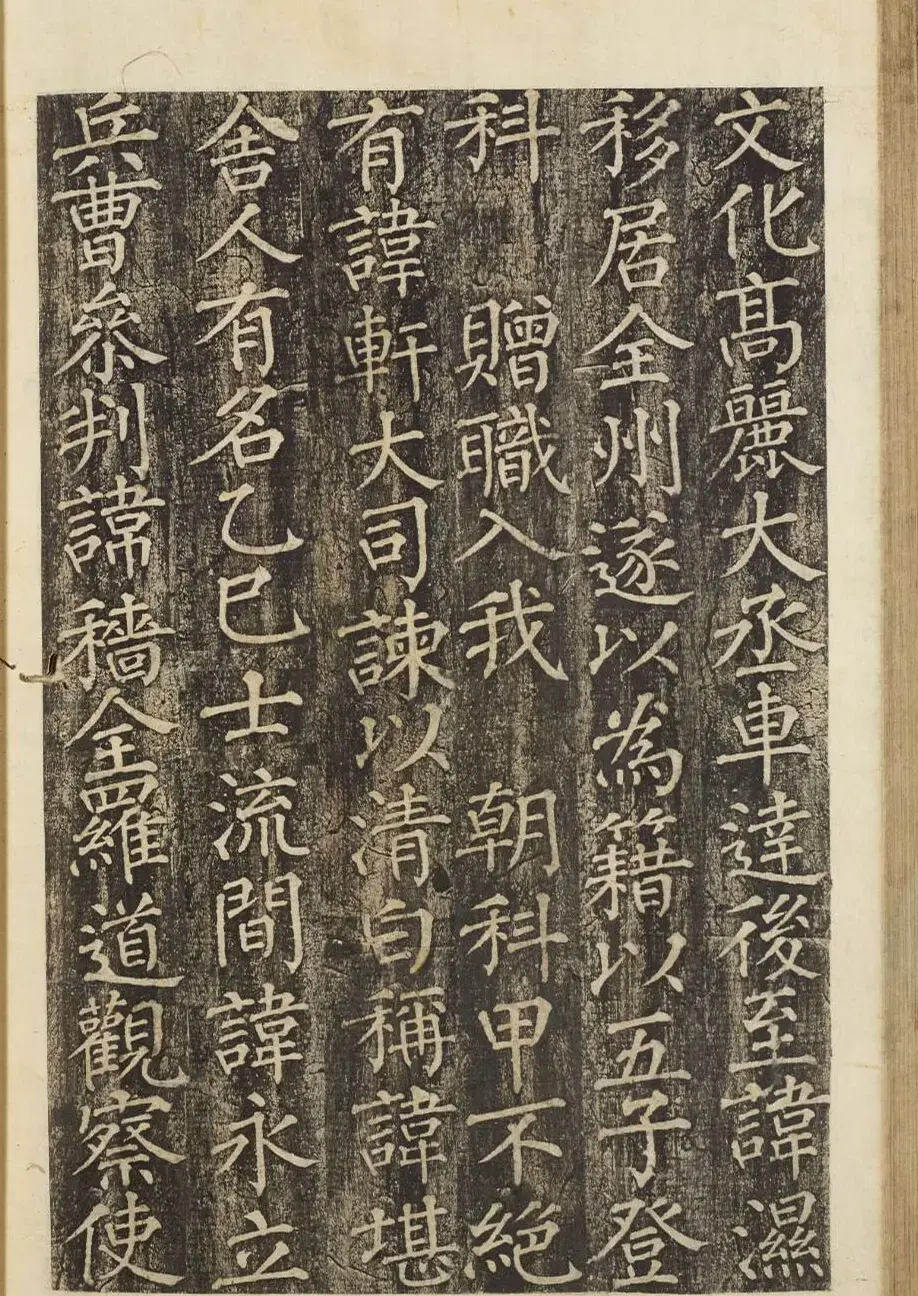 文化髙麗大丞車達後至諱濕
移居全州遂以為籍以五子登
科 贈職入我 朝科甲不絕
有諱軒大司諫以清白稱諱堪
舍人有名乙巳士流間諱永立
兵曹叅判諱穡全羅道觀察使